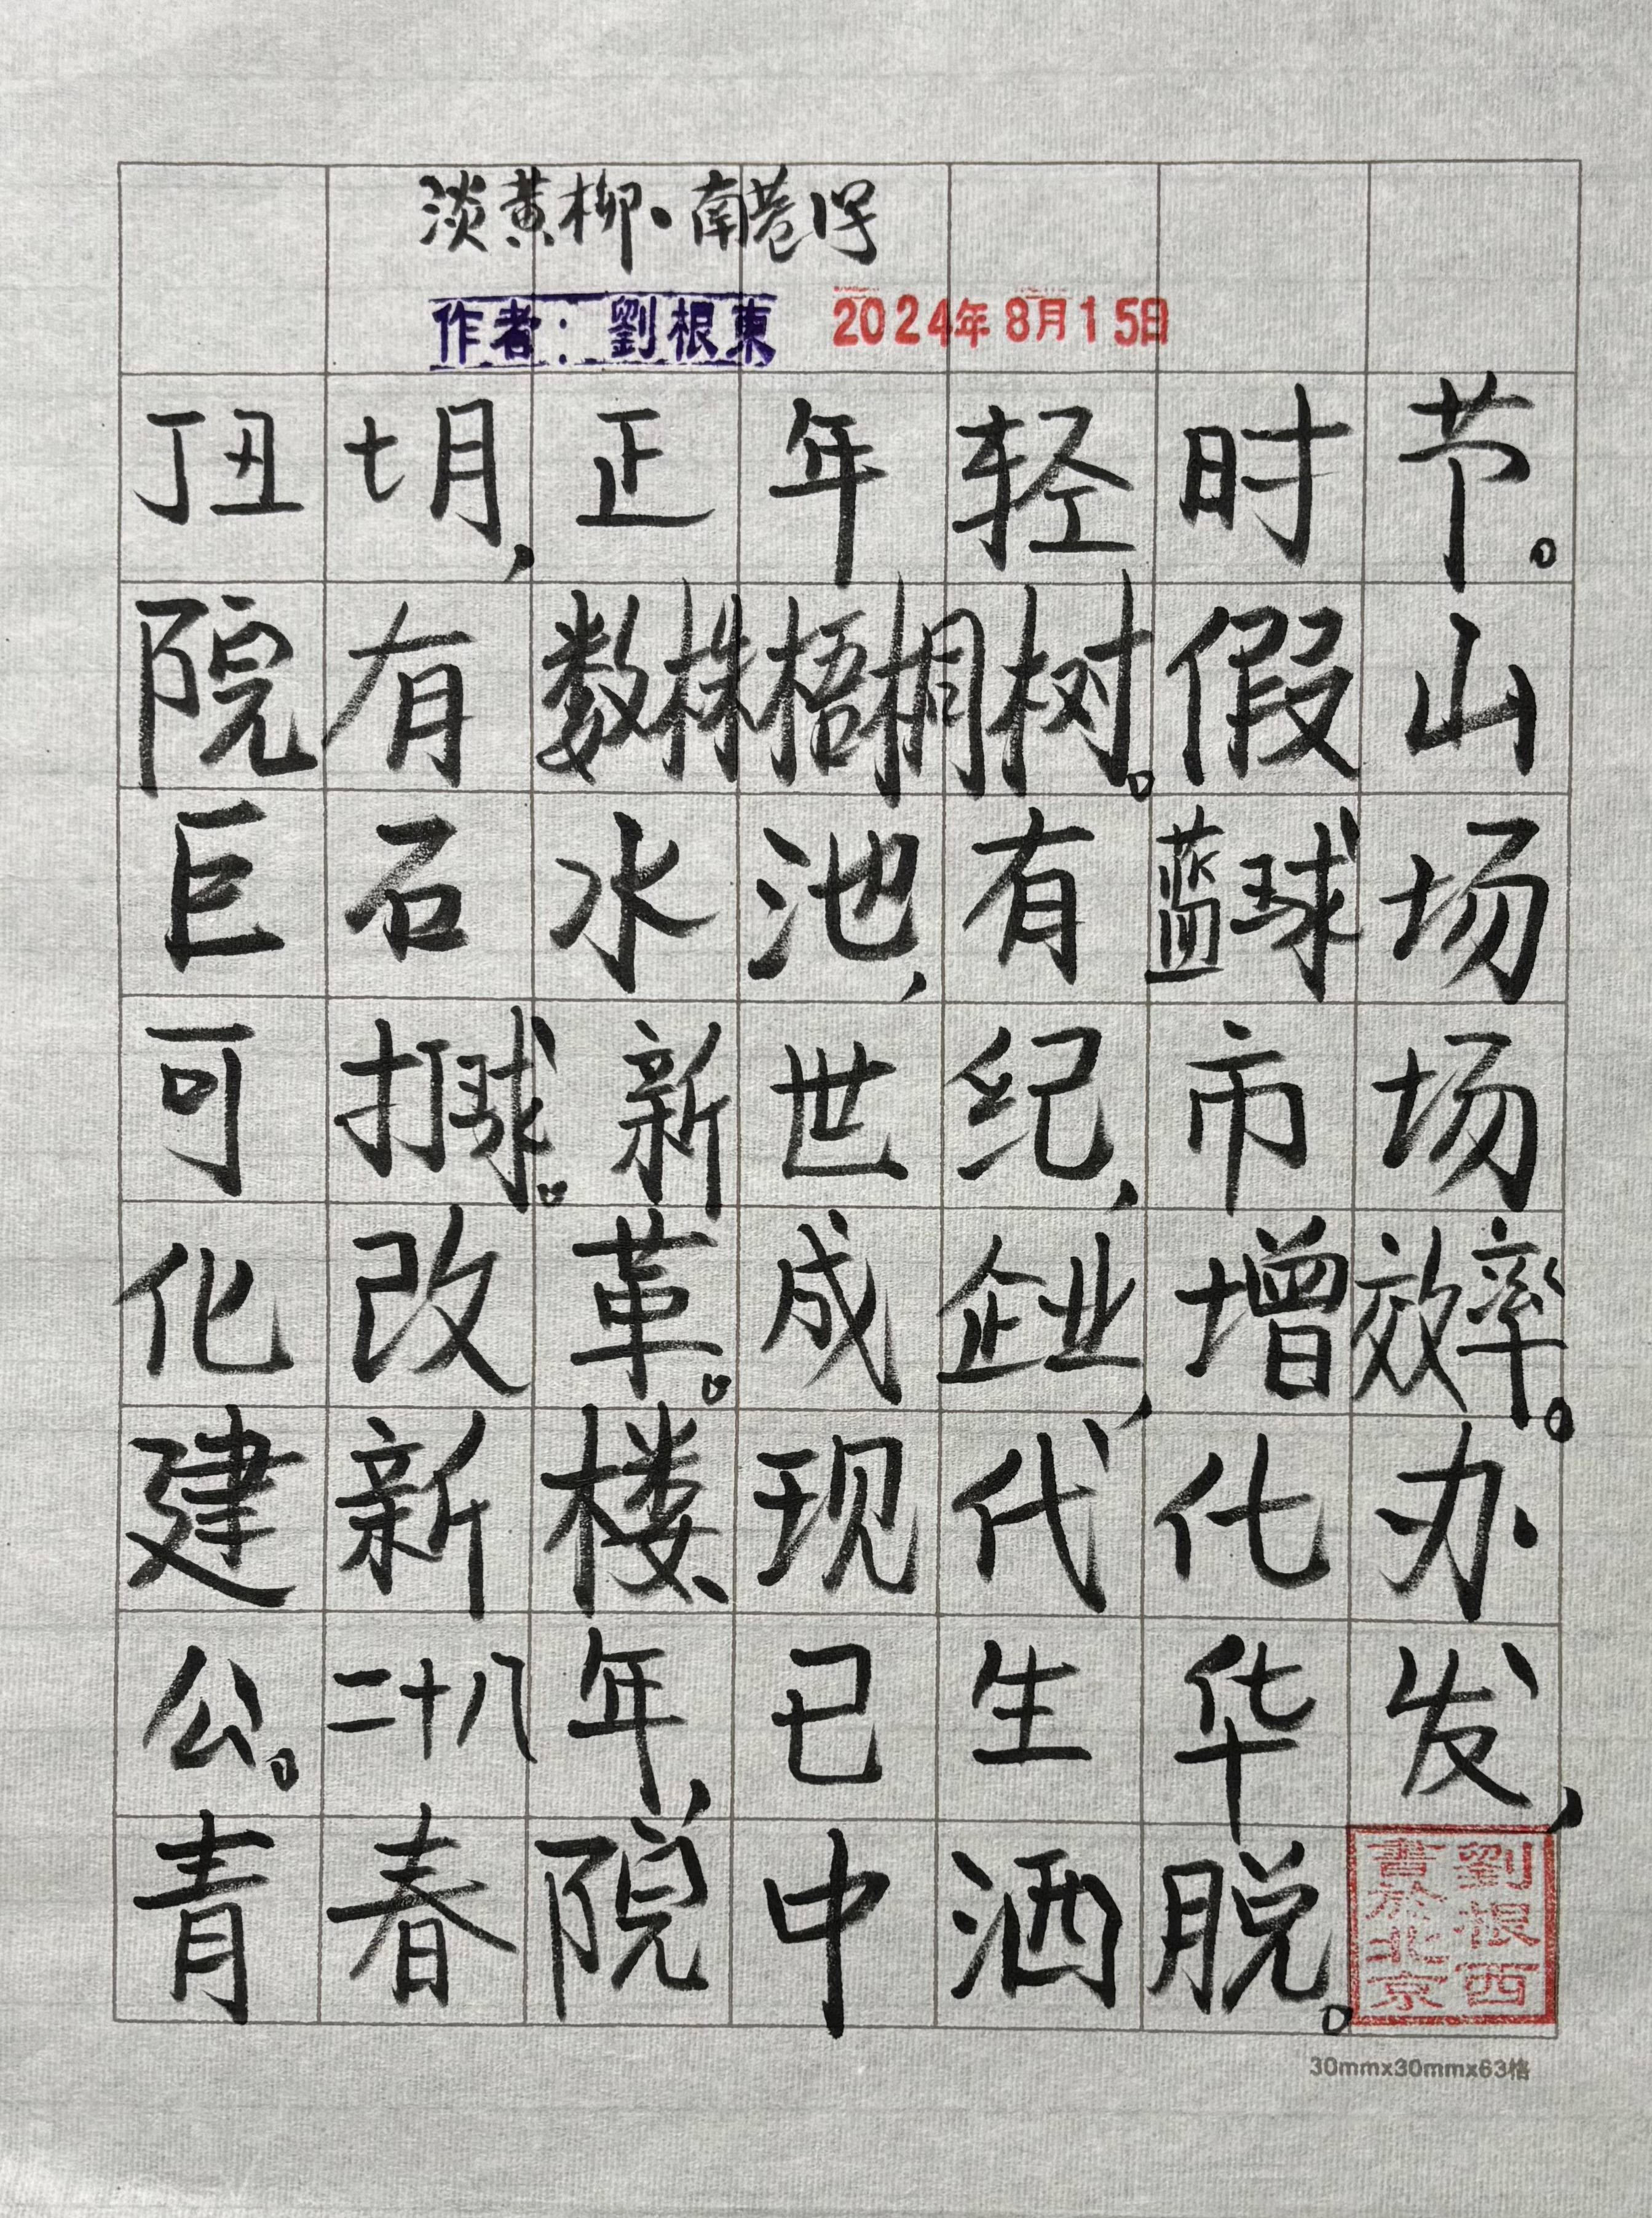 淡黄柳·南巷19号
作者：劉根東 2024年8月15日
丁丑七月，正年轻时节。
院有数株梧桐树。假山
巨石水池，有蓝球场
可打球。新世纪，市场
化改革。成企业，增效率。
建新楼、现代化办
公。二十八年，已生华发，
青春院中洒脱。
劉根西
書於北京
30mmx30mmx63格